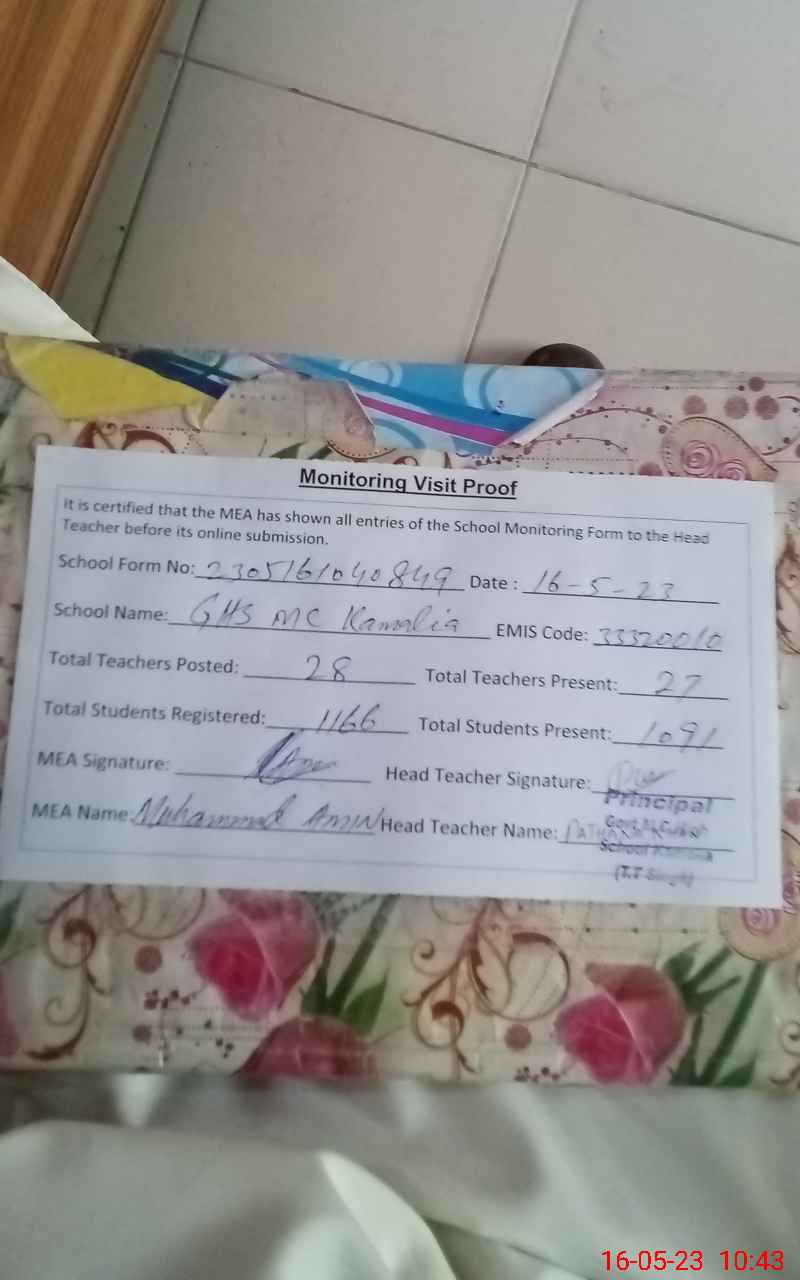 Monitoring Visit Proof
It is certified that the MEA has shown all entries of the School Monitoring Form to the Head
Teacher before its online submission.
School Form No: 2305161040849 Date : 16-5-23
School Name: GHS MC Kamalia EMIS Code: 33320010
Total Teachers Posted: 28 Total Teachers Present: 27
Total Students Registered: 1166 Total Students Present: 1091
MEA Signature: Head Teacher Signature:
Principal
MEA Name: Muhammad Amin Head Teacher Name:
School Kamalia
(T.T Singh)
16-05-23 10:43